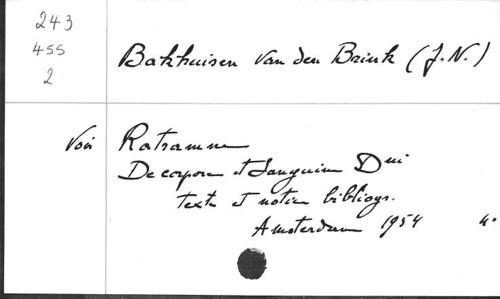 243
455
2
Bakhuisen van den Brink (J.N.)
Voir Ratramne
De corpore et Sanguine Dni
texte et notice bibliogr.
Amsterdam 1954 4°